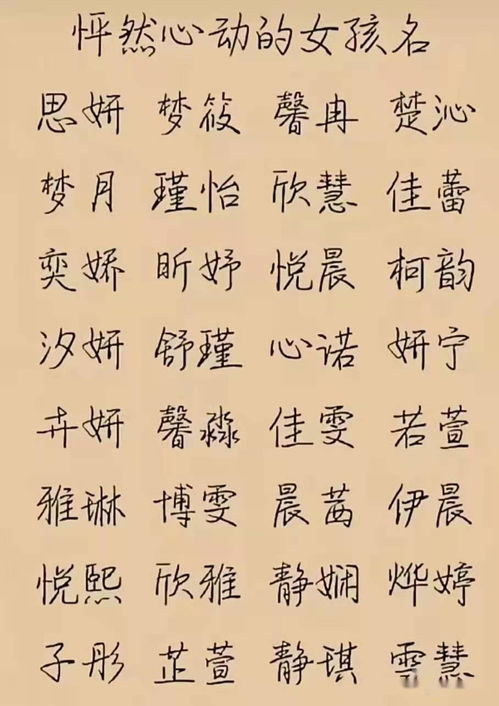 怦然心动的女孩名
思妍 梦筱 馨冉 楚沁
梦月 瑾怡 欣慧 佳蕾
奕娇 昕妤 悦晨 柯韵
汐妍 舒瑾 心诺 妍宁
卉妍 馨淼 佳雯 若萱
雅琳 博雯 晨茜 伊晨
悦熙 欣雅 静娴 烨婷
子彤 芷萱 静琪 雪慧